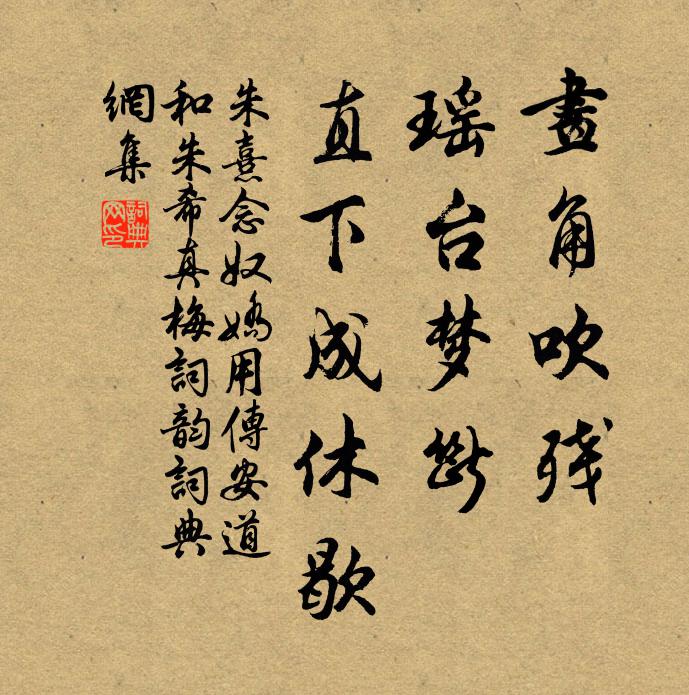 畫角吹残
瑶台梦斷
直下成休歇
朱熹念奴嬌用傅安道
和朱希真梅詞韵詞典
網集
詞典
网印